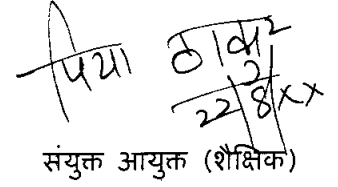 प्रिया ठाकुर
22/8/xx
संयुक्त आयुक्त (शैक्षिक)